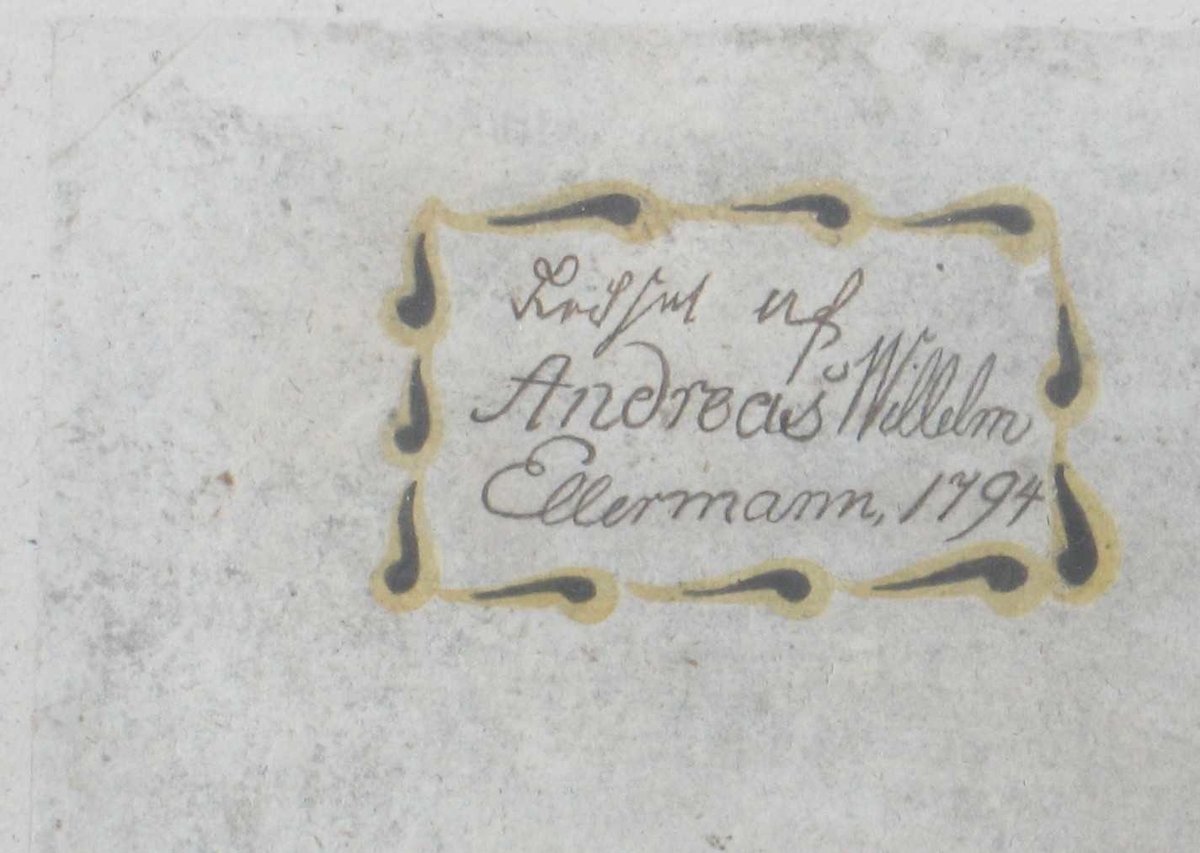 af
Andreas Willelm
Ellermann, 1794